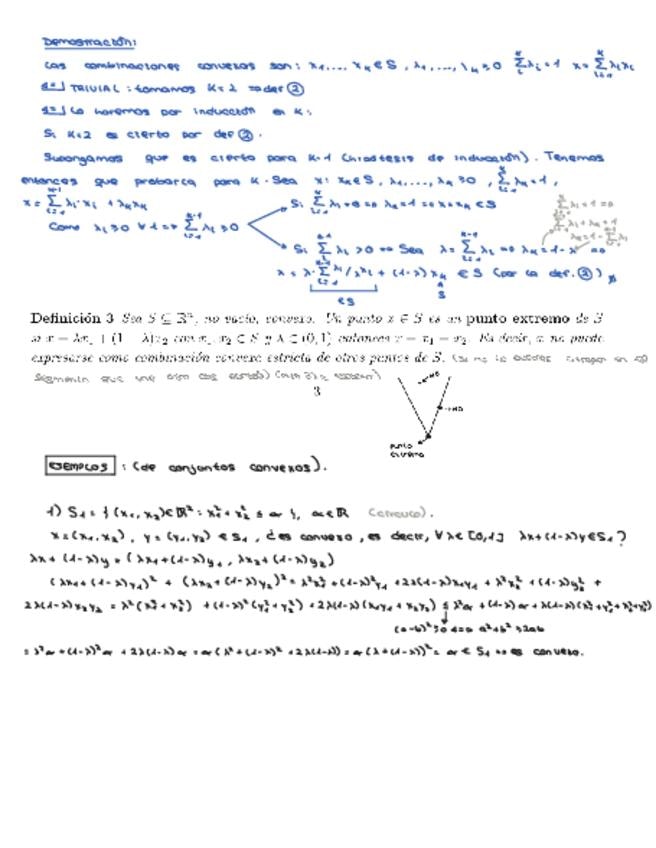 Demostración:
Las combinaciones convexas son: x₁,..., xₖ ∈ S, λ₁,..., λₖ ≥ 0 Σλᵢ = 1 x = Σλᵢxᵢ
TRIVIAL: tomamos K=2 ⇒ def ②
Lo haremos por inducción en K:
Si K=2 es cierto por def ②.
Supongamos que es cierto para K-1 (hipótesis de inducción). Tenemos
entonces que probarlo para K. Sea x: xₖ ∈ S, λ₁,..., λₖ ≥ 0, Σλᵢ = 1,
x = Σλᵢ·xᵢ + λₖxₖ
Si Σλᵢ = 0 ⇒ λₖ = 1 ⇒ x = xₖ ∈ S
Como λᵢ ≥ 0 ∀i ⇒ Σλᵢ ≥ 0
Si Σλᵢ > 0 ⇒ Sea λ = Σλᵢ ⇒ λₖ = 1-λ ⇒
x = λ·Σλᵢ/λ xᵢ + (1-λ) xₖ ∈ S (por la def. ②)
∈ S
Definición 3 Sea S ⊆ ℝⁿ, no vacío, convexo. Un punto x ∈ S es un punto extremo de S
si x = λx₁ + (1 − λ)x₂ con x₁, x₂ ∈ S y λ ∈ (0, 1) entonces x = x₁ = x₂. Es decir, x no puede
expresarse como combinación convexa estricta de otros puntos de S.
segmento que une
3
→ NO
→ NO
punto
extremo
EJEMPLOS : (de conjuntos convexos).
1) S₁ = { (x₁, x₂) ∈ ℝ² : x₁² + x₂² ≤ α }, α ∈ ℝ (círculo).
x = (x₁, x₂), y = (y₁, y₂) ∈ S₁, ¿es convexo, es decir, ∀λ ∈ [0,1] λx + (1-λ)y ∈ S₁?
λx + (1-λ)y = (λx₁ + (1-λ)y₁, λx₂ + (1-λ)y₂)
(λx₁ + (1-λ)y₁)² + (λx₂ + (1-λ)y₂)² = λ²x₁² + (1-λ)²y₁ + 2λ(1-λ)x₁y₁ + λ²x₂² + (1-λ)y₂² +
2λ(1-λ)x₂y₂ = λ²(x₁² + x₂²) + (1-λ)²(y₁² + y₂²) + 2λ(1-λ)(x₁y₁ + x₂y₂) ≤ λ²α + (1-λ)α + λ(1-λ)(x₁² + y₁² + x₂² + y₂²)
(a-b)² ≥ 0 ⇔ a² + b² ≥ 2ab
= λ²α + (1-λ)²α + 2λ(1-λ)α = α(λ² + (1-λ)² + 2λ(1-λ)) = α(λ + (1-λ))² = α ∈ S₁ ⇒ es convexo.